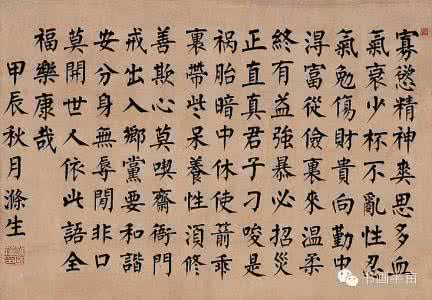 寡慾精神爽思多血
氣衰少杯不亂性忍
氣勉傷財貴向勤中
淂富從儉裏來温柔
終有益強暴必招災
正直真君子刁唆是
祸胎暗中休使箭乖
裏帶些呆養性須修
善欺心莫喫齋衙門
戒出入鄉黨要和諧
安分身無辱閒非口
莫開世人依此語全
福樂康哉
甲辰秋月滌生
书画半亩